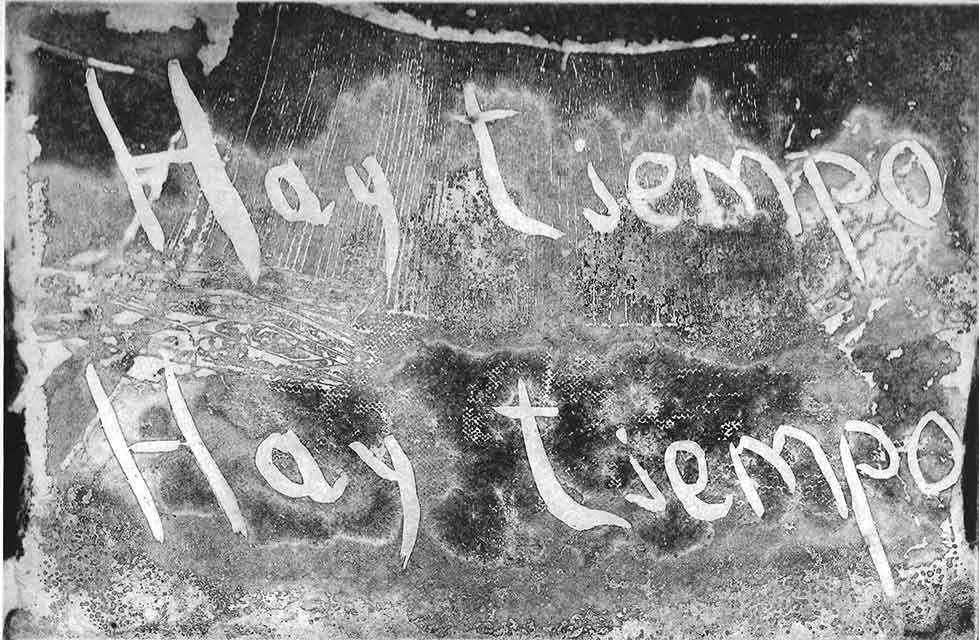 Hay tiempo
Hay tiempo